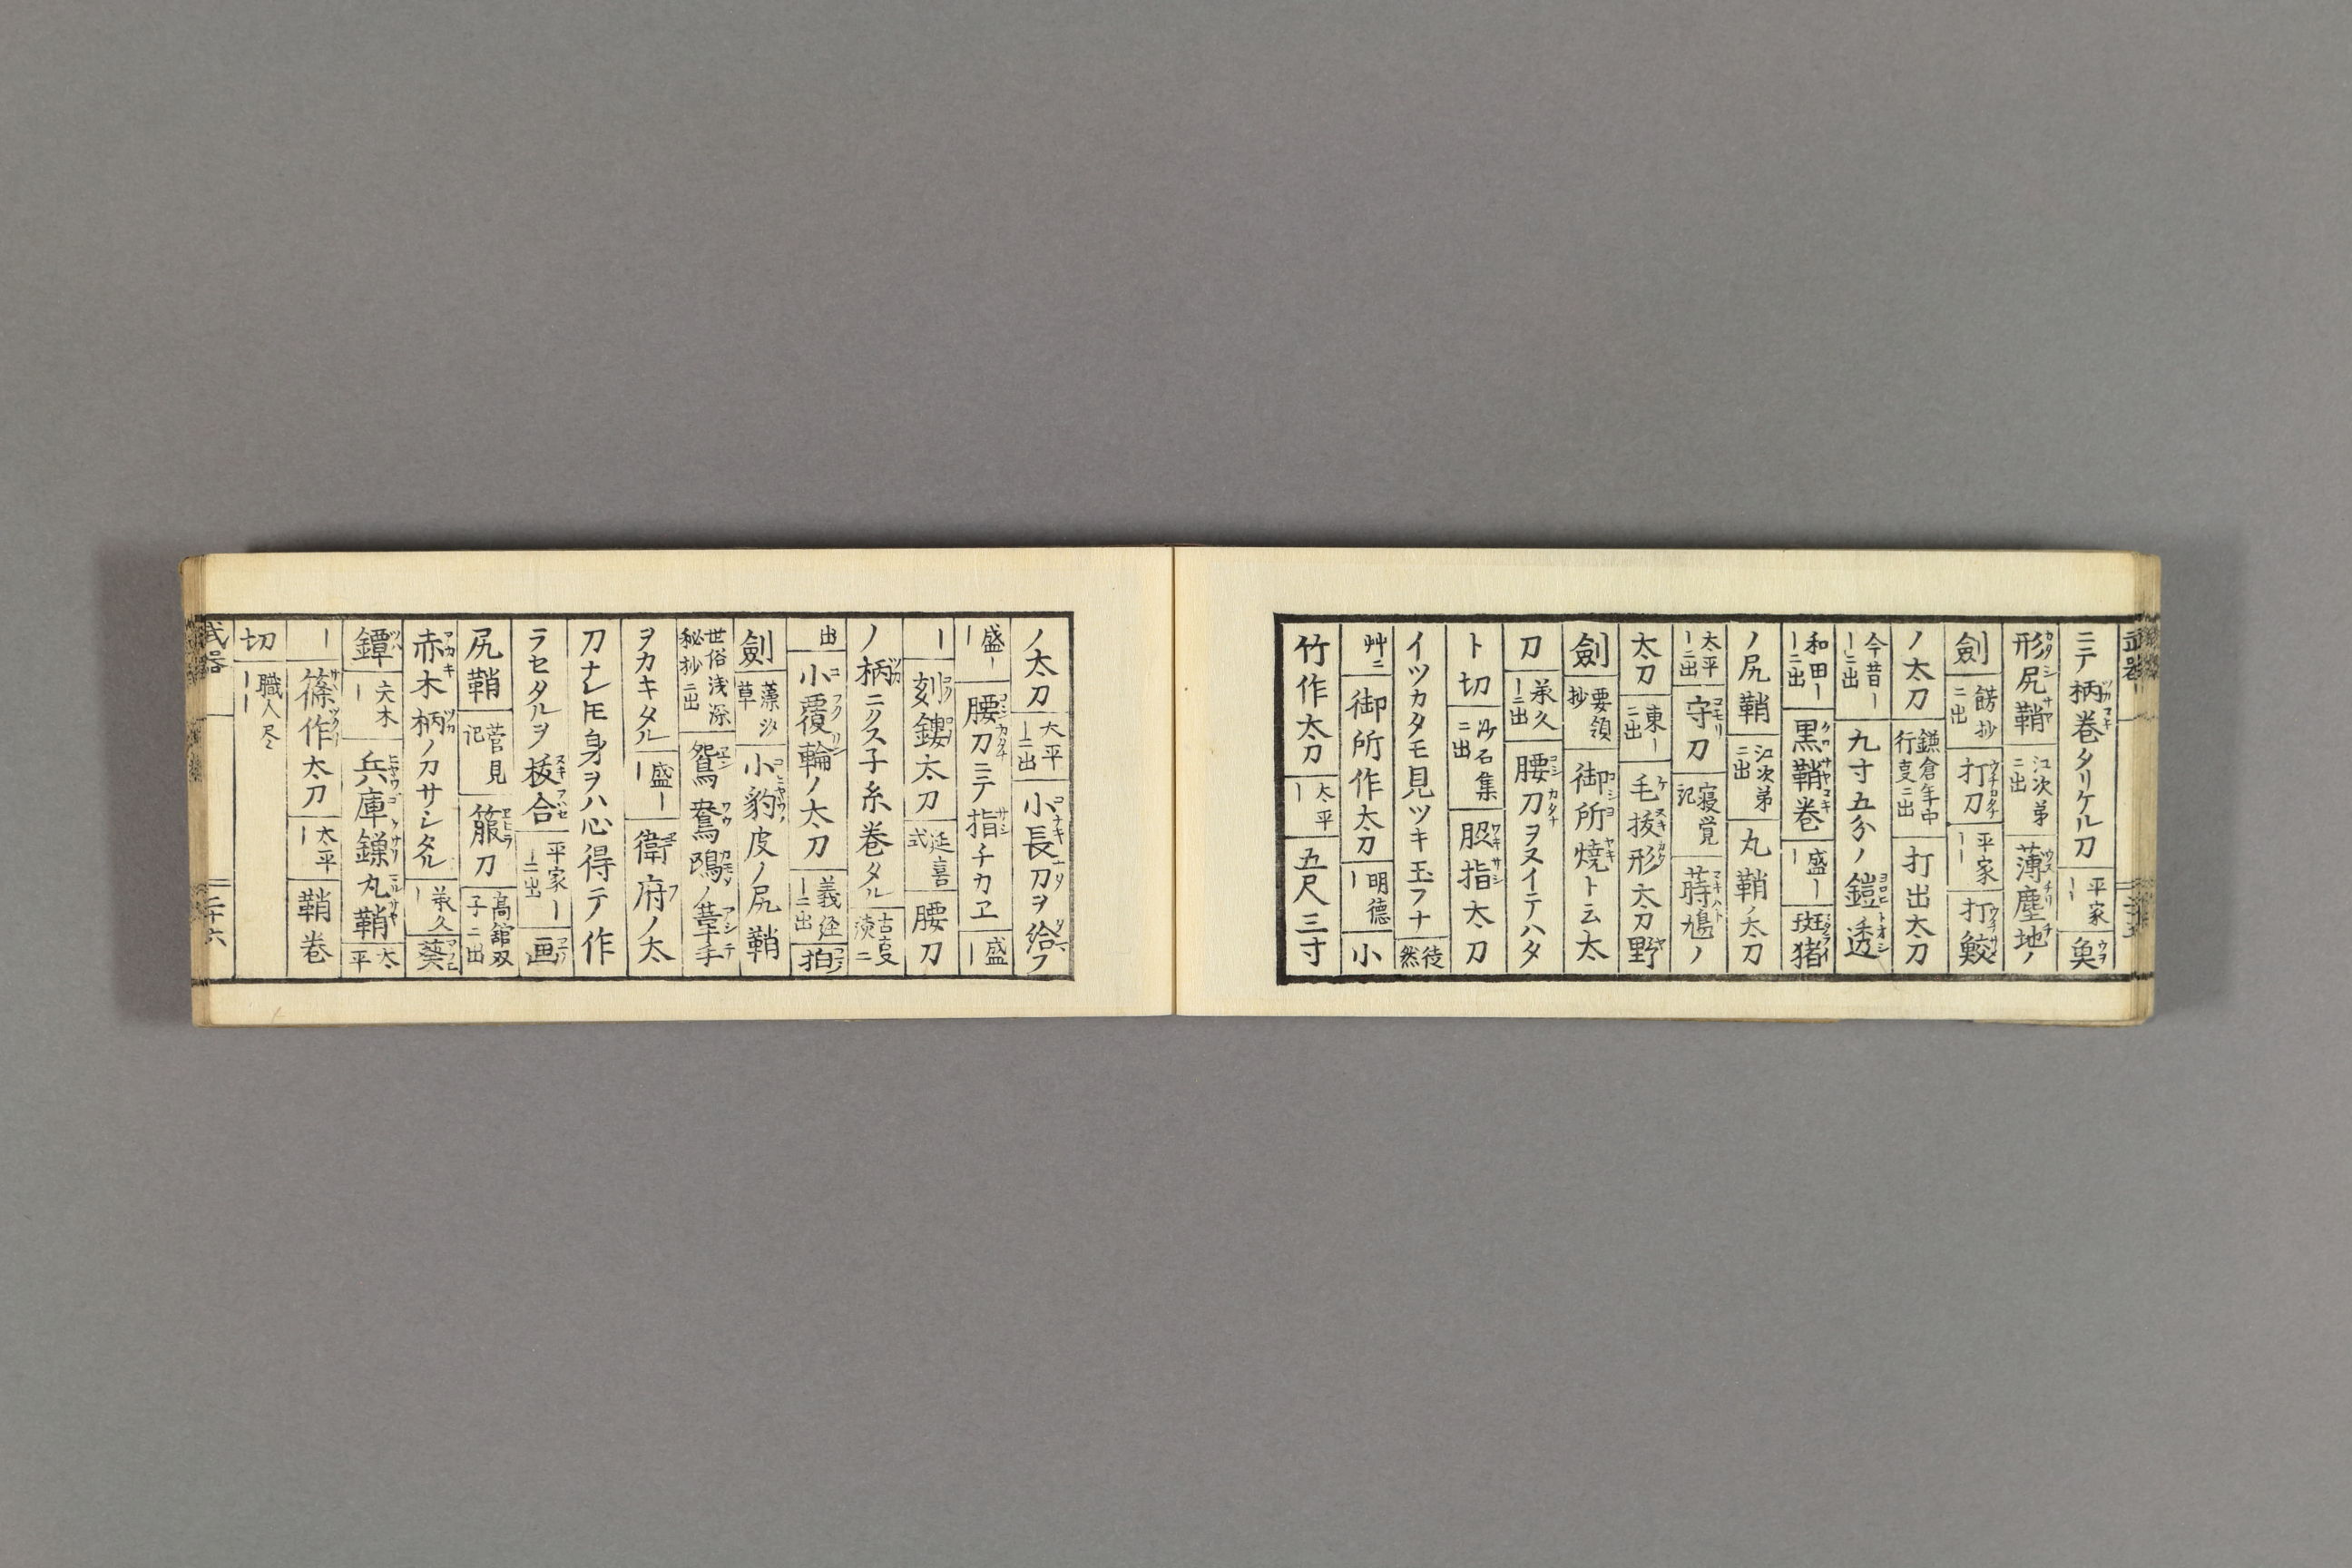 ニテ柄巻タリケル刀 平家ーー 奐
形尻鞘 江次第ニ出 薄塵地ノ
劍 餝抄ニ出 打刀 平家ーー 打鮫
ノ太刀 鎌倉年中行叓ニ出 打出太刀
今昔ーーニ出 九寸五分ノ鎧透
和田ーーニ出 黒鞘巻 盛ーー 斑猪
ノ尻鞘 江次第ニ出 丸鞘ノ太刀
太平ーニ出 守刀 寝覚記 蒔鳩ノ
太刀 東ーニ出 毛抜形太刀 野
劍 要領抄 御所焼ト云太
刀 承久ーニ出 腰刀ヲヌイテハタ
ト切 沙石集ニ出 股指太刀
イツカタモ見ツキ玉フナ 徒然
艸ニ 御所作太刀 明徳ー 小
竹作太刀 太平ー 五尺三寸
ノ太刀 太平ーニ出 小長刀ヲ給フ
盛ーー 腰刀ニテ指チカヱ 盛ー
ー 刻鏤太刀 延喜式 腰刀
ノ柄ニクス子糸巻タル 古叓談ニ
出 小覆輪ノ太刀 義経ーニ出 拍
劍 藻汐草 小豹皮ノ尻鞘
世俗浅深秘抄ニ出 鴛鴦鴎ノ葦手
ヲカキタル 盛ーー 衛府ノ太
刀ナレ𪜈身ヲハ心得テ作
ラセタルヲ 抜合 平家ーーニ出 画
尻鞘 菅見記 箙刀 高舘双子ニ出
赤木柄ノ刀サシタル 承久ー 葵
鐔 太木ー 兵庫鏁丸鞘 太平
ー 篠作太刀 太平ー 鞘巻
切 職人尽ーー
武器 二十六